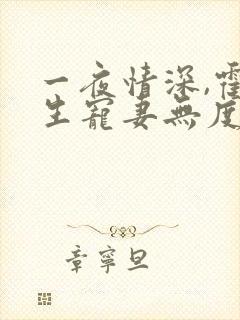 一夜情深,
生寵妻無度
章寧旦